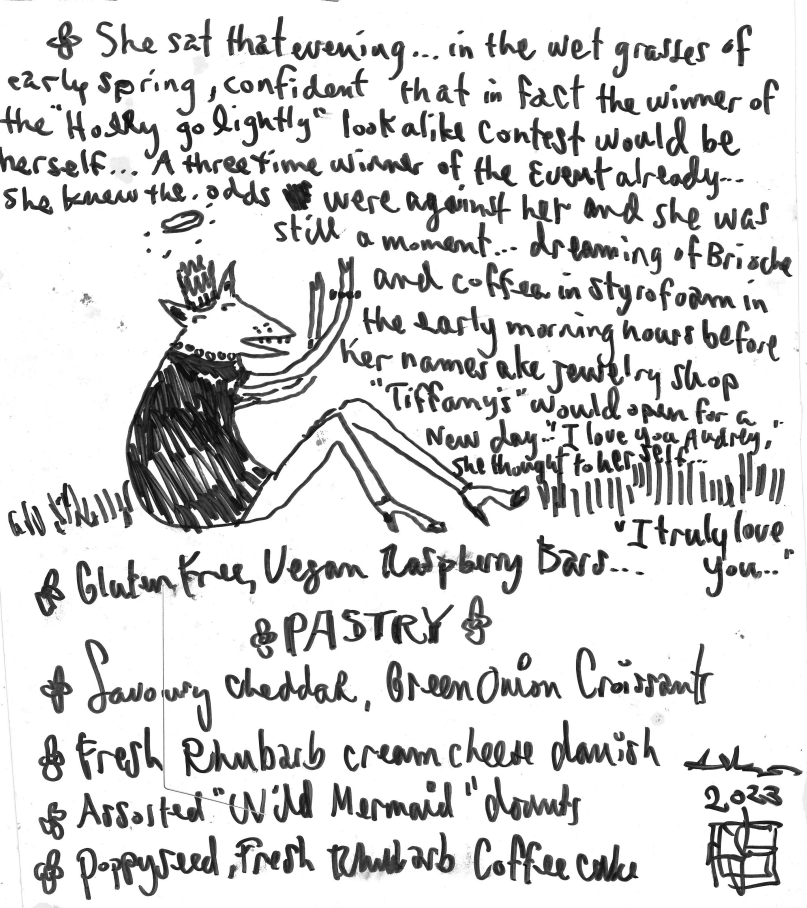 She sat that evening... in the wet grasses of
early spring, confident that in fact the winner of
the "Holly go lightly" look alike contest would be
herself... A three time winner of the Event already...
she knew the odds were against her and she was
still a moment... dreaming of Brioche
and coffee in styrofoam in
the early morning hours before
her namesake jewelry shop
"Tiffany's" would open for a
New day.. "I love you Audrey,"
she thought to herself...
"I truly love
you..."
Gluten Free, Vegan Raspberry Bars...
PASTRY
Savoury cheddar, Green Onion Croissant
Fresh Rhubarb cream cheese danish
Assorted "Wild Mermaid" donuts
Poppyseed, Fresh Rhubarb Coffee cake
2023